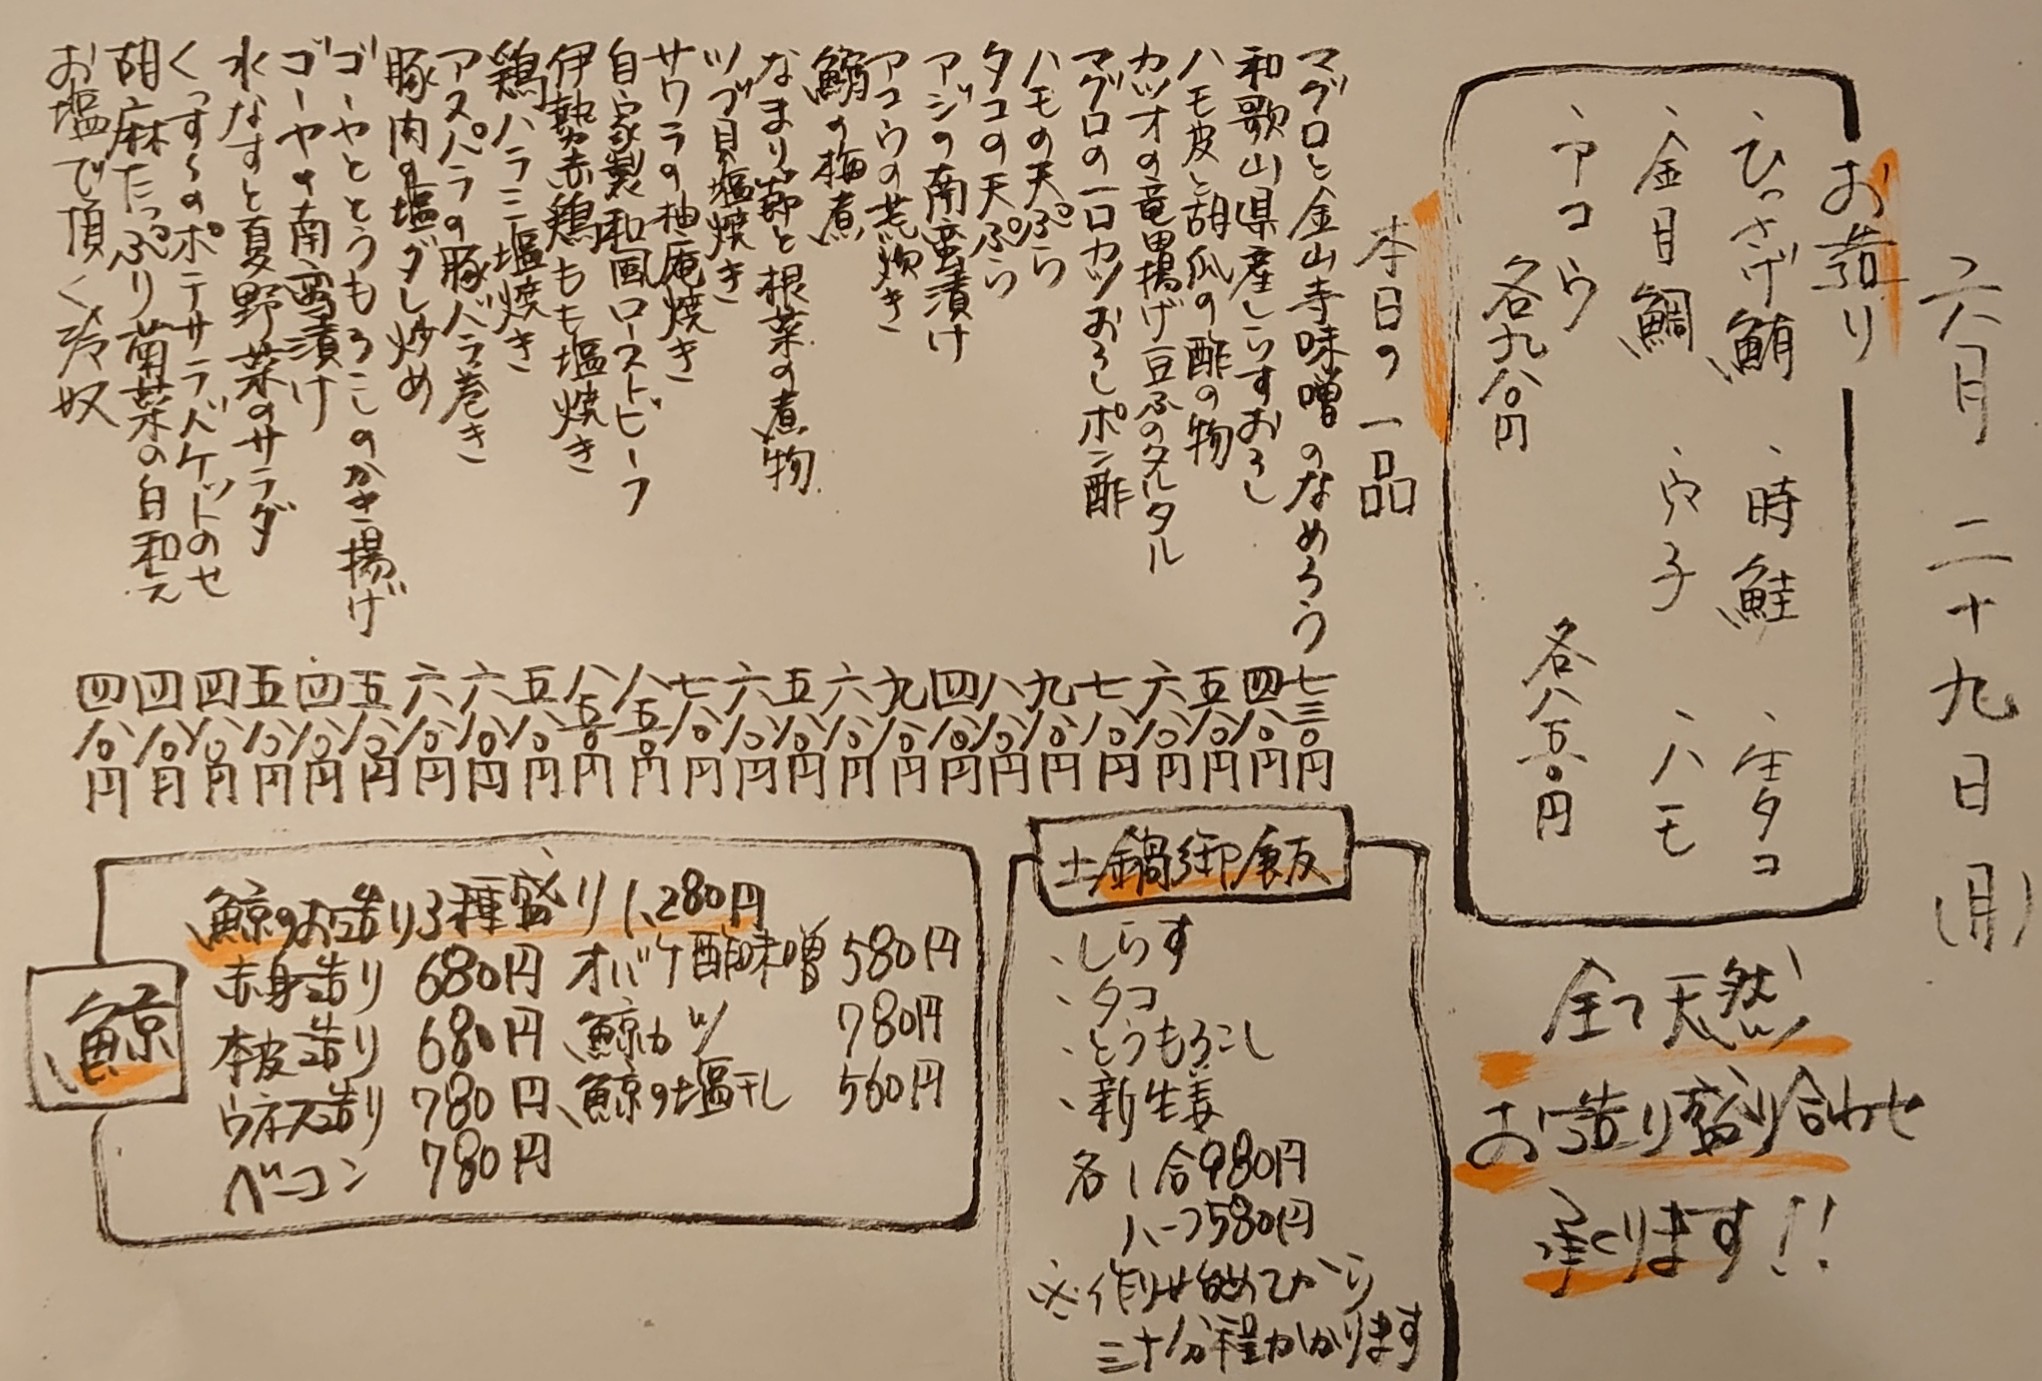 六月二十九日(月)
お造り
、ひっさげ鮪 、時鮭 、生タコ
、金目鯛 、穴子 、ハモ
、アコウ 各八五〇円
各九八〇円
全て天然
お造り盛り合わせ
承ります!!
本日の一品
マグロと金山寺味噌のなめろう 七三〇円
和歌山県産しらすおろし 四八〇円
ハモ皮と胡瓜の酢の物 五八〇円
カツオの竜田揚げ豆ふのタルタル 六八〇円
マグロの一口カツおろしポン酢 七八〇円
ハモの天ぷら 九八〇円
タコの天ぷら 八八〇円
アジの南蛮漬け 四八〇円
アコウの荒炊き 九八〇円
鰯の梅煮 六八〇円
なまり節と根菜の煮物 五八〇円
ツブ貝塩焼き 六八〇円
サワラの柚庵焼き 七八〇円
自家製和風ローストビーフ 八五〇円
伊勢赤鶏もも塩焼き 八五〇円
鶏ハラミ塩焼き 五八〇円
アスパラの豚バラ巻き 六八〇円
豚肉の塩ダレ炒め 六八〇円
ゴーヤととうもろこしのかき揚げ 五八〇円
ゴーヤの南蛮漬け 四八〇円
水なすと夏野菜のサラダ 五八〇円
ポテサラバケットのせ 四八〇円
胡麻たっぷり菊菜の白和え 四八〇円
お塩で頂く冷奴 四八〇円
土鍋御飯
、しらす
、タコ
、とうもろこし
、新生姜
各1合980円
ハーフ580円
※作り始めてから
三十分程かかります
鯨
鯨のお造り3種盛り 1,280円
赤身造り 680円 オバケ酢味噌 580円
本皮造り 680円 鯨カツ 780円
ウネス造り 780円 鯨の塩干し 560円
ベーコン 780円